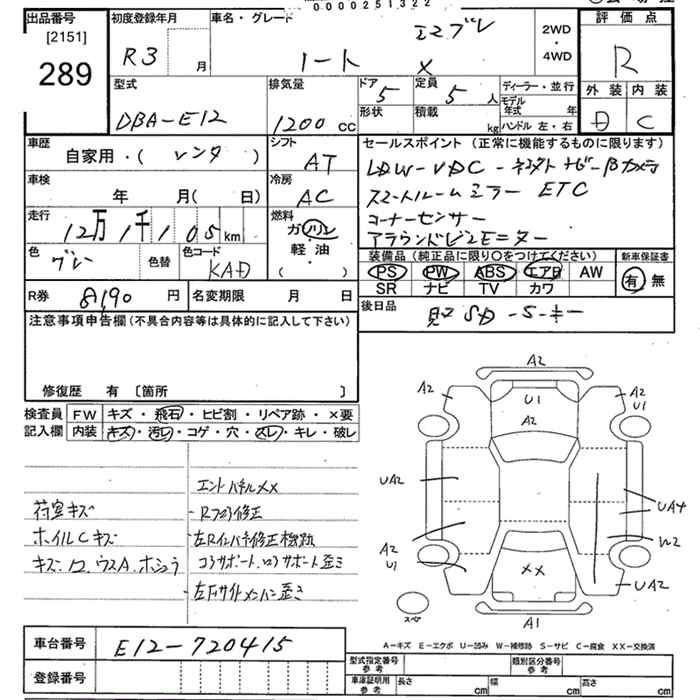 0000251322
出品番号 [2151] 289
初度登録年月 R3 月
車名・グレード ノート エマブレ X
2WD ・ 4WD
評価点 R
外装 D 内装 C
型式 DBA-E12
排気量 1200 CC
ドア 5 形状
定員 5 人 積載 kg
ディーラー・並行
モデル年式 年
ハンドル 左・右
車歴 自家用・( レンタ )
シフト AT
車検 年 月( 日)
冷房 AC
走行 12万1千105km
燃料 ガソリン 軽油 ( )
色 グレー 色替 色コード KAD
R券 8190 円
名変期限 月 日
セールスポイント (正常に機能するものに限ります)
LDW-VDC-ナビ-Bカメラ
スマートルームミラー ETC
コーナーセンサー
アラウンドビューモニター
装備品 (純正品に限り○をつけてください)
PS PW ABS エアB AW
SR ナビ TV カワ
新車保証書 有 無
後日品 SD-S-キー
注意事項申告欄 (不具合内容等は具体的に記入して下さい)
修復歴 有 〔箇所 〕
検査員記入欄
FW キズ・飛石・ヒビ割・リペア跡・×要
内装 キズ・汚レ・コゲ・穴・スレ・キレ・破レ
荷室キズ
ホイルCキズ
エンドパネルXX
左Rインパネ修正機跡
コアサポート、ロアサポート歪ミ
左Fサイドメンバー歪ミ
A2
A2 U1 A2 U1
A2
UA2 UA4
A2 U1 W2
XX UA2
スペア A1
車台番号 E12-720415
登録番号
A-キズ E-エクボ U-凹み W-補修跡 S-サビ C-腐食 XX-交換済
型式指定番号 参考 類別区分番号 参考
車庫証明用 参考 長さ cm 幅 cm 高さ cm